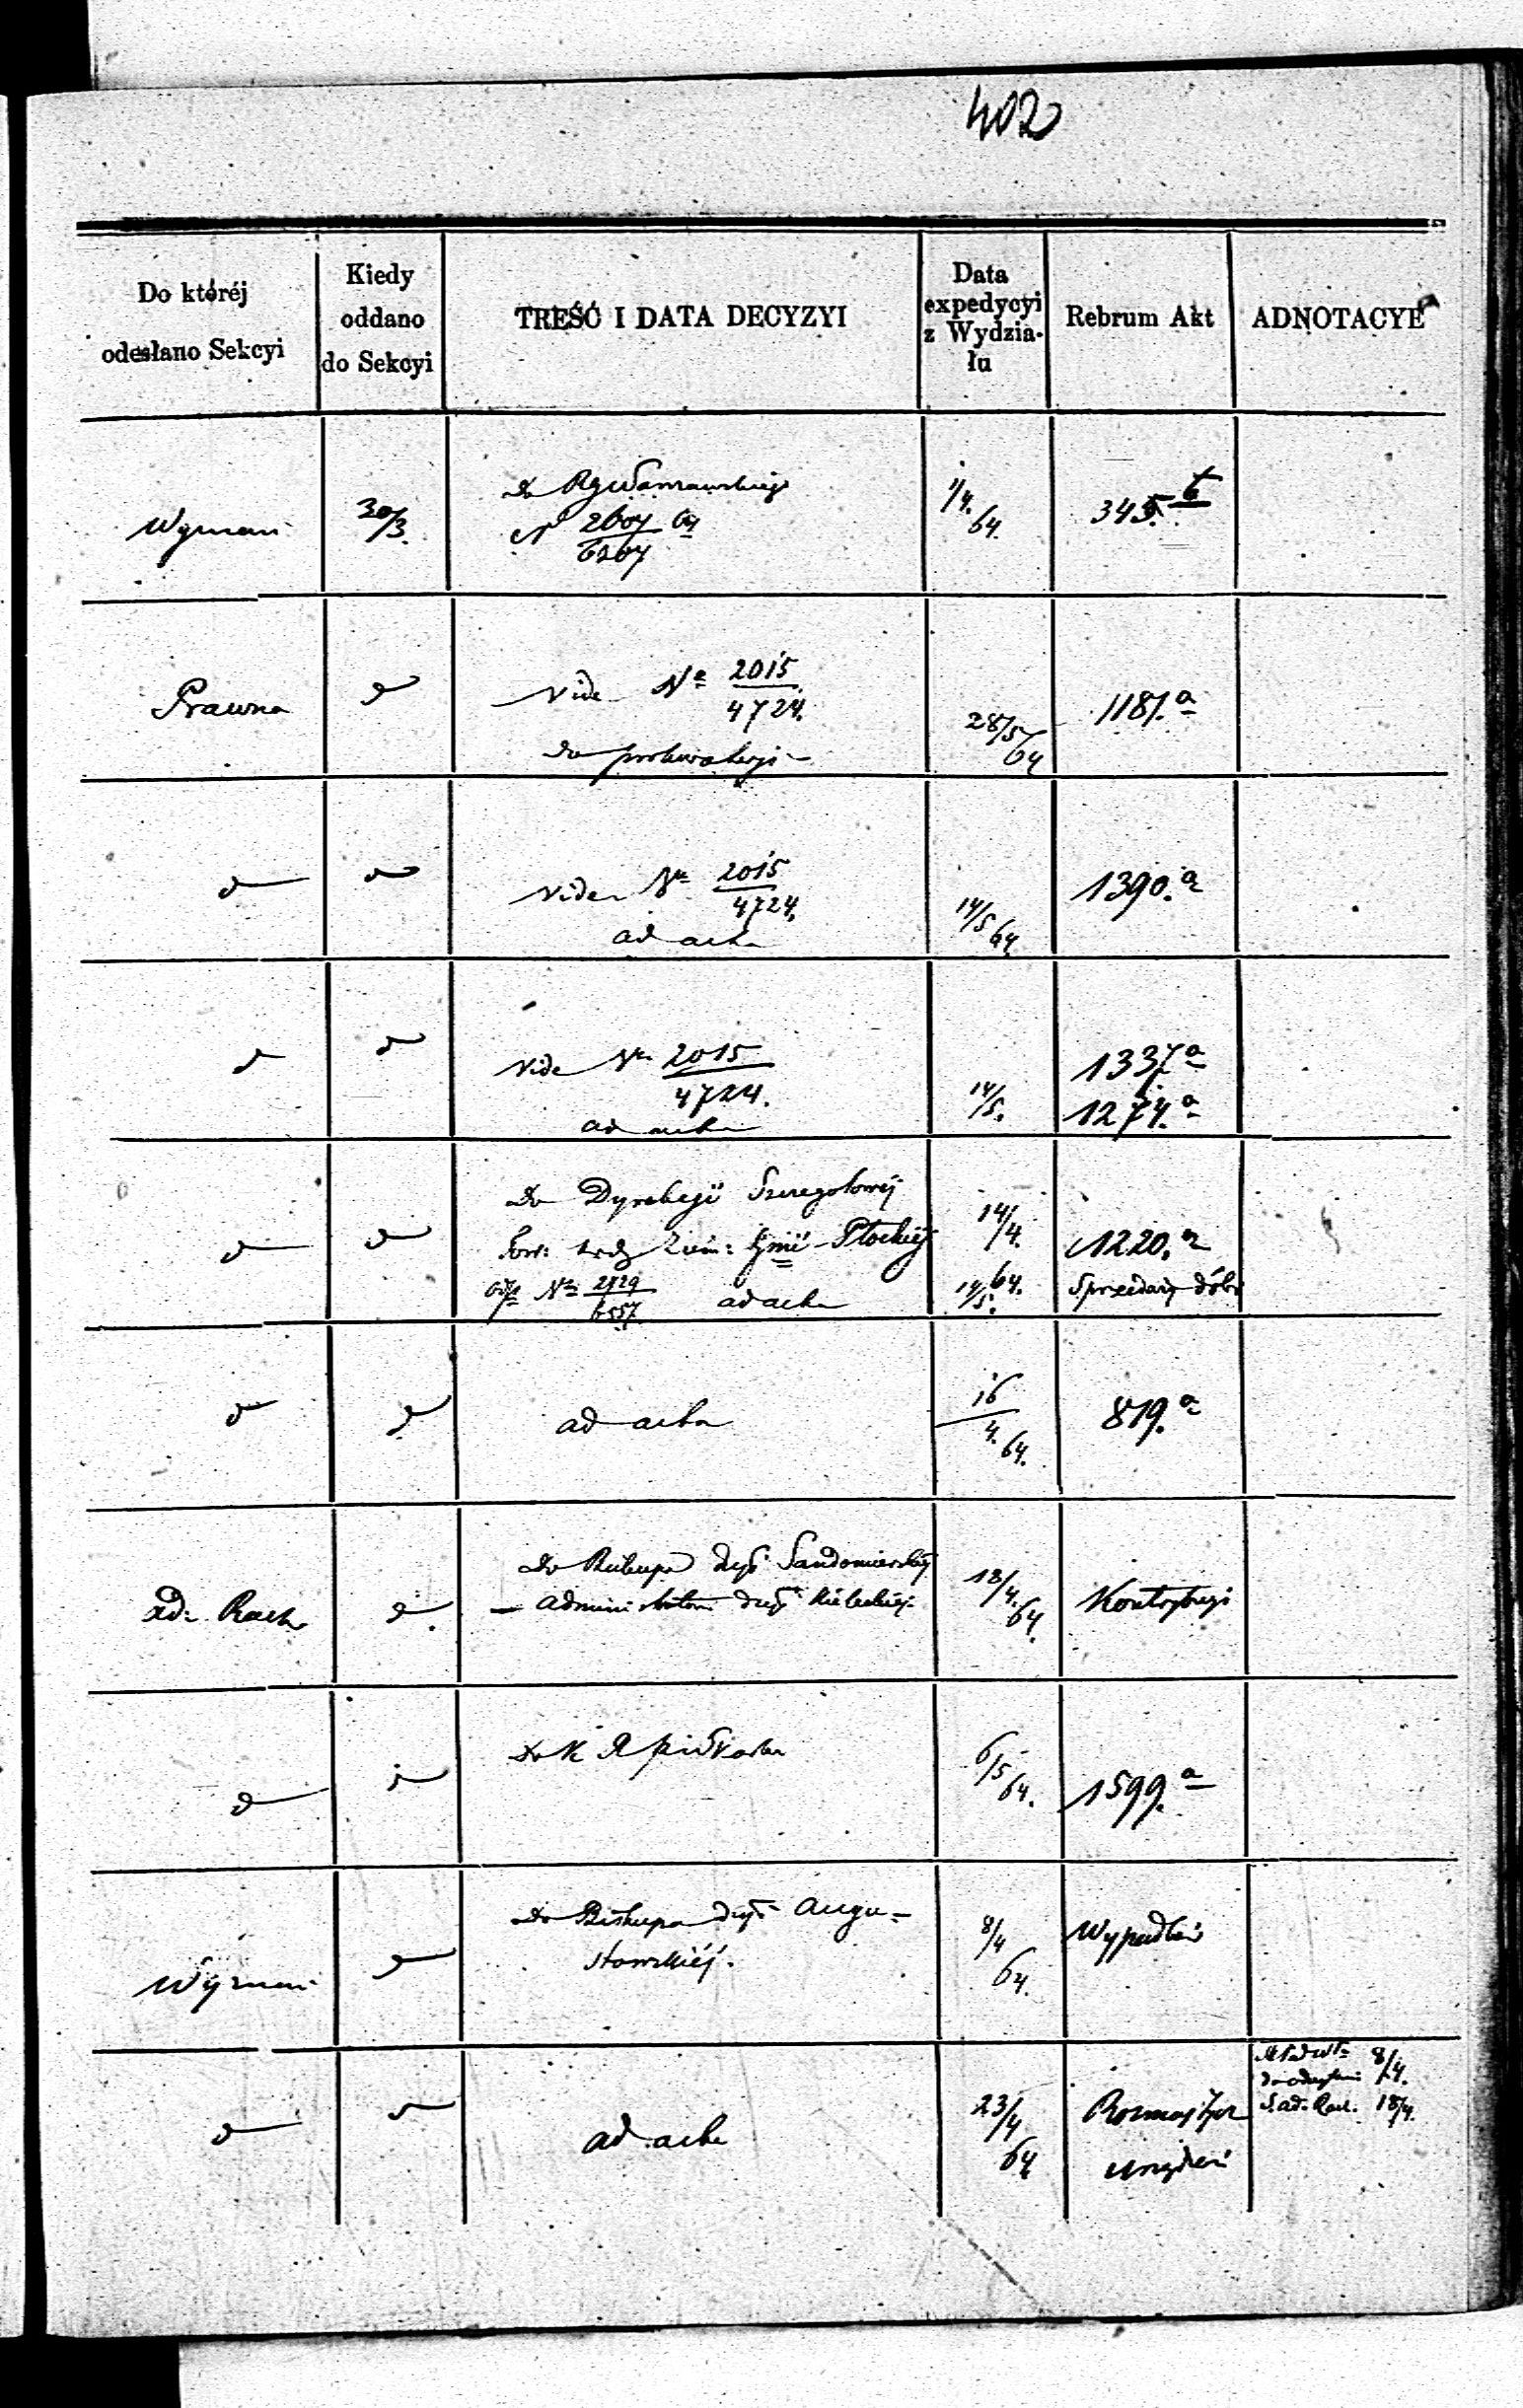 402
Do któréj
odesłano Sekcyi
Kiedy
oddano
do Sekcyi
TREŚĆ I DATA DECYZYI
Data
expedycyi
z Wydzia-
łu
Rebrum Akt
ADNOTACYE
Wyznań
30/3.
Do
N 2604 64
6204
1/4.
64.
345. b
Prawna
d
Vide Nr 2015
4724.
do prokuratoryi
28/5
64
1187. a
d
d
Vide Nr 2015
4724.
ad acta
14/5 64.
1390. a
d
d
Vide Nr 2015
4724.
ad acta
14/5.
1337. a
1274. a
d
d
Do Dyrekcyi Szczegołowéj
Tow: Ziem: Gnii Płockiéj
odp Nr 2729
6557
ad acta
14/4.
64.
14/5.
1220. a
Sprzedaży dóbr
d
d
ad acta
16
4. 64.
819. a
ad. Rach.
d
Do Biskupa Dyi Sandomierskiéj
– Administratora Dyi Kieleckiéj
18/4.
64.
Kontrybucyi
d
d
Do K R
6/5 64.
1599. a
Wyznań
d
Do Biskupa Dyi Augu-
stowskiéj.
8/4
64.
d
d
ad acta
23/4
64
Rozmaitych
urządzeń
8/4.
S. ad. Rach. 18/4.